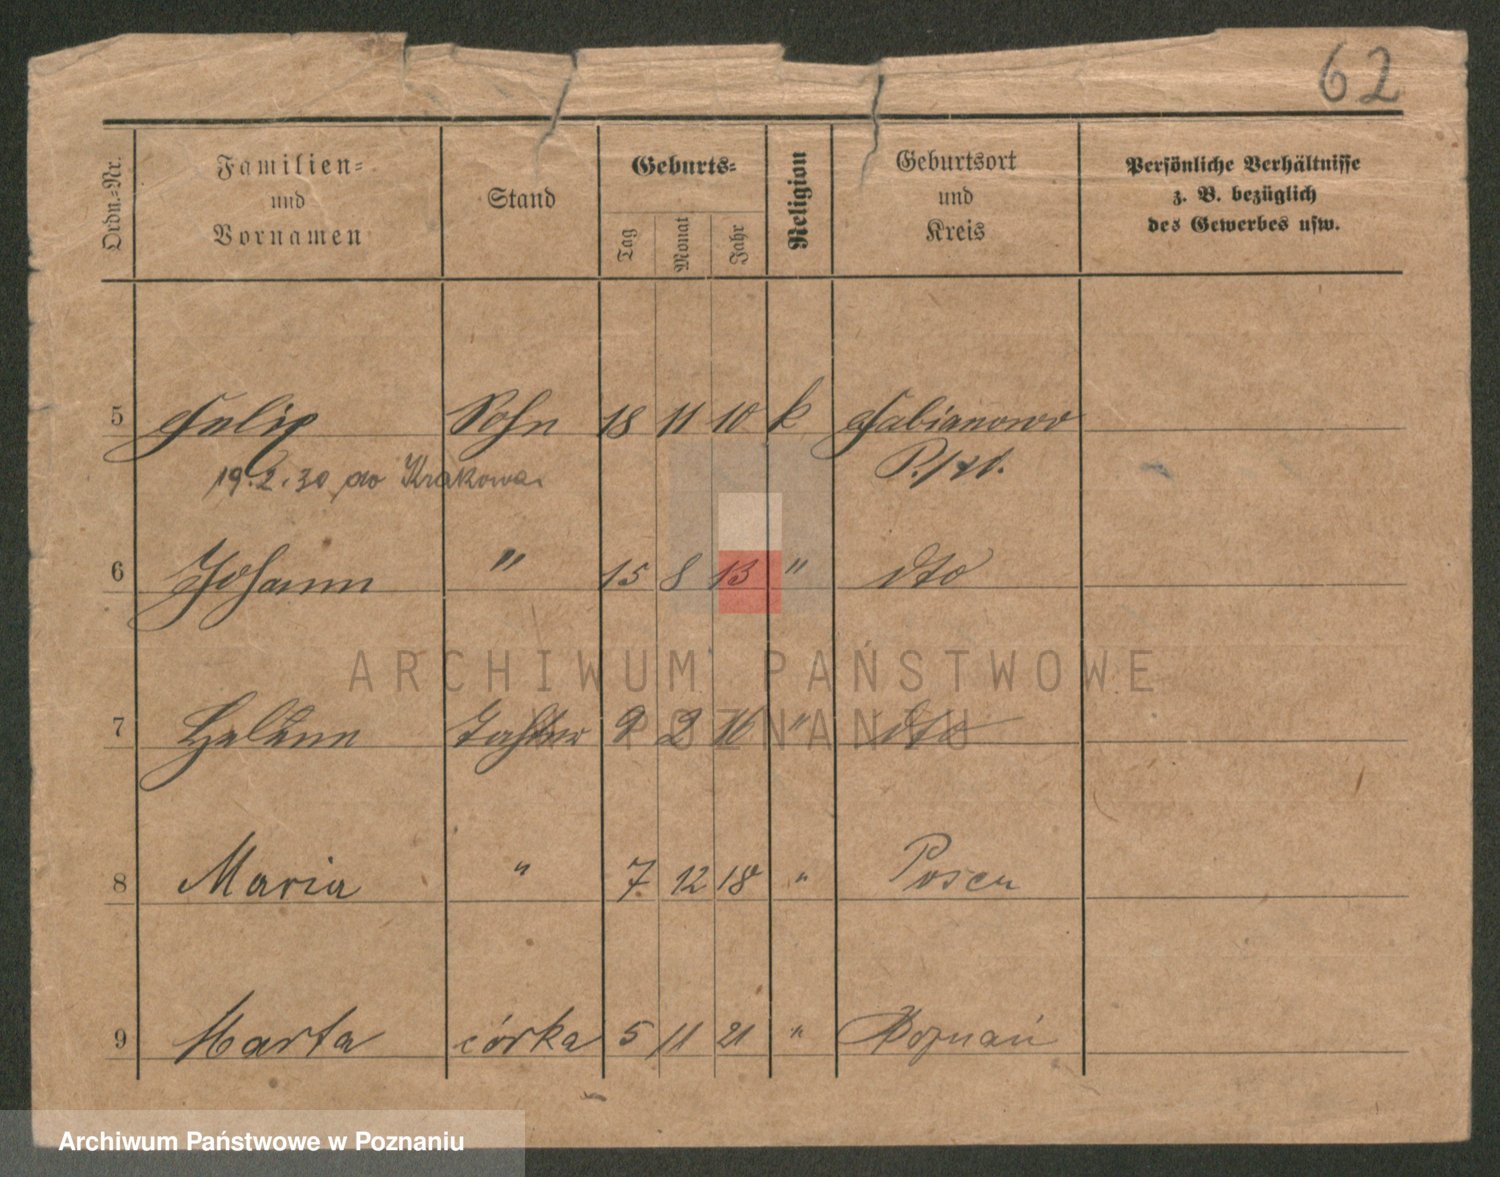 62
Ordn.-Nr.
Familien-
und
Vornamen
Stand
Geburts-
Tag
Monat
Jahr
Religion
Geburtsort
und
Kreis
Persönliche Verhältnisse
z. B. bezüglich
des Gewerbes usw.
5 Felix Sohn 18 11 10 k Fabianowo
19.2.30 do Krakowa
6 Johann " 15 8 13 " dto
7 Helene Tochter 9 2 16 " dto
8 Maria " 7 12 18 " Posen
9 Marta córka 5 11 21 " Poznań
ARCHIWUM PAŃSTWOWE
W POZNANIU
Archiwum Państwowe w Poznaniu